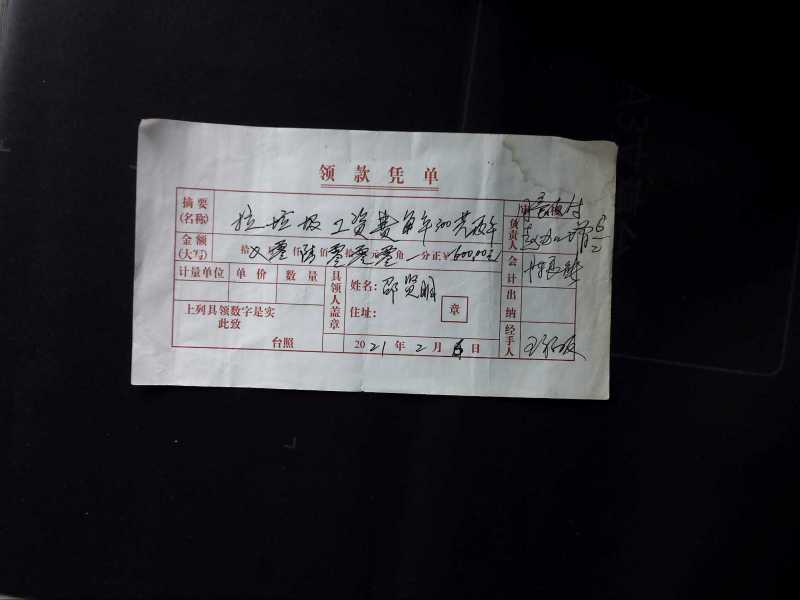 领款凭单
摘要(名称) 拉垃圾工资费每年300共两年
金额(大写) 拾 万零仟陆佰零拾零元零角 分正¥600.00元
计量单位 单价 数量
具领人盖章
姓名:邵贤明
住址:
章
上列具领数字是实
此致
台照
2021年2月6日
负责人
会计
出纳
经手人